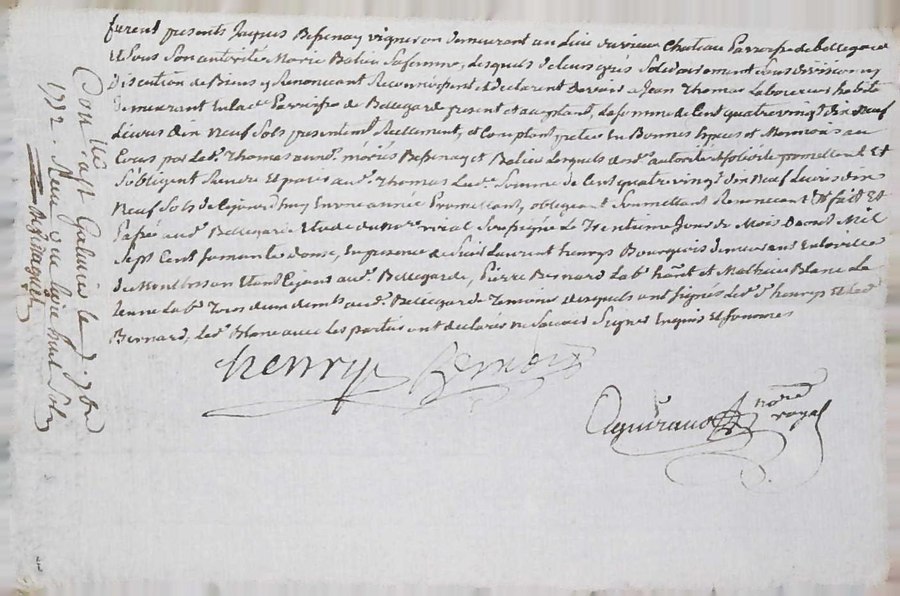 furent presents Jaques Bessenay vigneron demeurant au Lieu du vieux Chateau Parroisse de bellegarde
Et Sous Son autorité Marie Balieu Sa femme, Lesquels de leurs grés Solidairement Sans division ny
discution de Biens y Renonceant Reconnoissent et declarent devoir a Jean Thomas Laboureur habit
demeurant en lad. Parroisse de Bellegarde present et acceptant, La somme de Cent quatre vingt dix neuf
Livres dix neuf Sols presentement Reellement, et Comptant pretée En Bonnes Especes et Monnoies au
Cours par led. Thomas auxd. mariés Bessenay et Balieu Lesquels de ad. autorité et solidité promettent Et
S'obligent Rendre Et payer aud. Thomas Lad. Somme de Cent quatre vingt dix Neuf Livres dix
Neuf Sols de Cejourd'huy En une année Promettant, obligeant Soumettant Renonceant & fait Et
Passé aud. Bellegarde Etude du no.re royal Soussigné Le Trentieme Jour du Mois D'aout Mil
Sept Cent Soixante douze, En presence de Sieur Laurent henrys Bourgeois demeurant En la ville
de Montbrison Etant Cejour aud. Bellegarde, Pierre Bernard Lab. et Mathieu Blanc Le
Jeune Lab. Tous deux demts aud. Bellegarde Temoins desquels ont signés Led. Sr. henrys Et Led.
Bernard, Led. Blanc avec Les parties ont declarés ne Savoir Signer Enquis Et sommés
henrys Bernard
no.re
royal
Con.lé a St Galmier le 7.bre
1772. Reçu une livre huit Sols